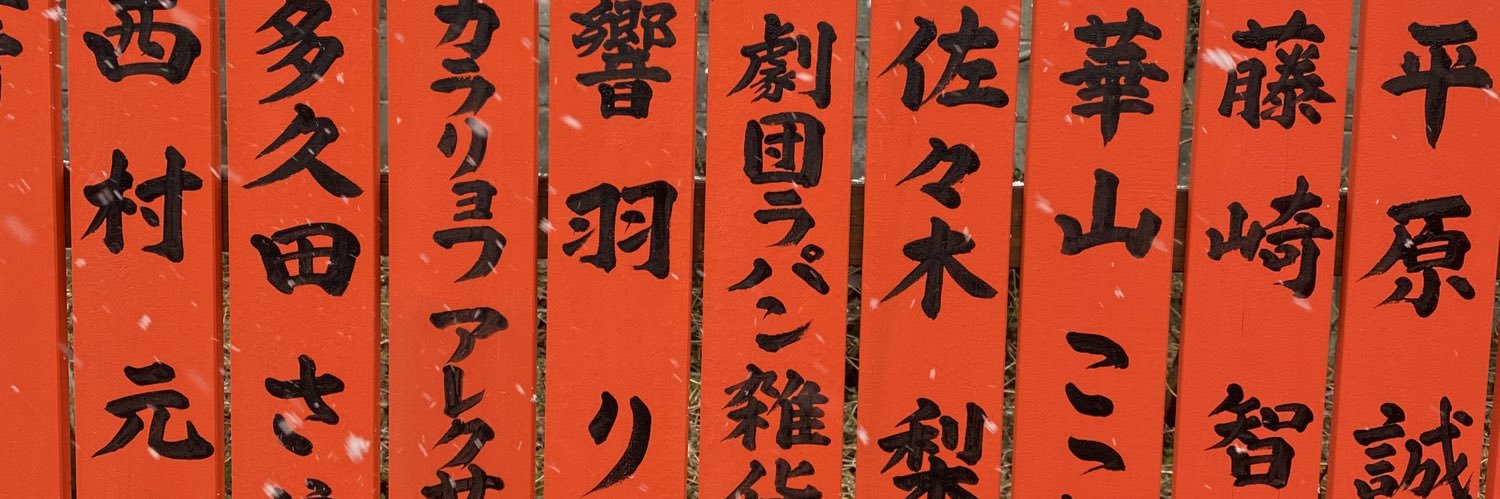 平原誠
藤崎智
華山ここ
佐々木梨
劇団ラパン雑貨
響羽り
カラリョフ アレクサ
多久田さ
西村元